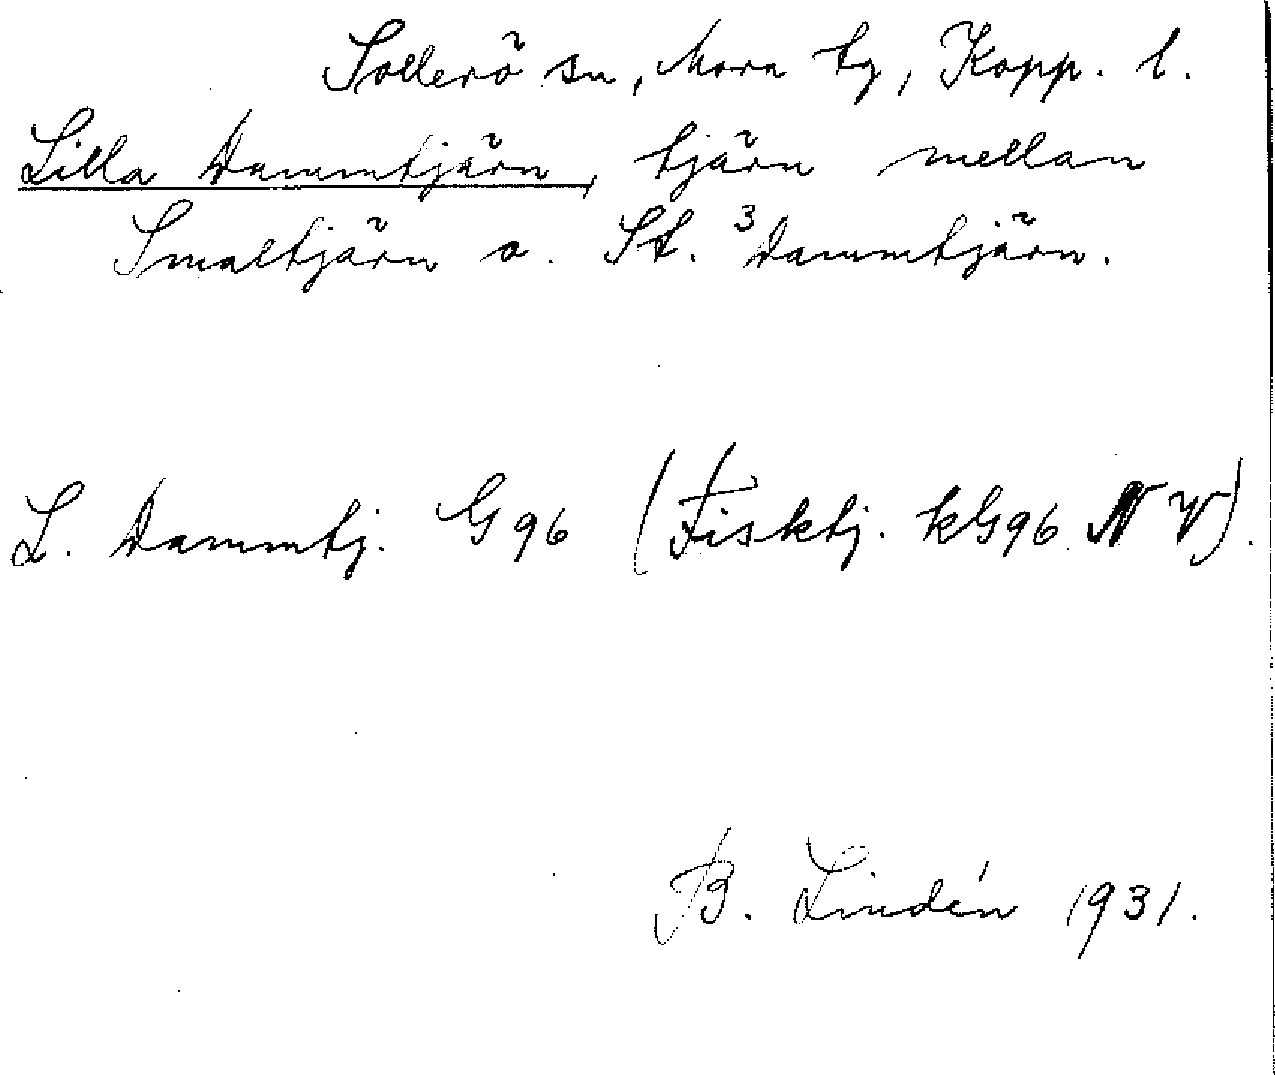 Sollerö sn, Mora tg, Kopp. l.
Lilla Dammtjärn, tjärn mellan
Smaltjärn o. St. ³Dammtjärn.
L. Dammtj. G96 (Fisktj. kG96 NV).
B. Lindén 1931.